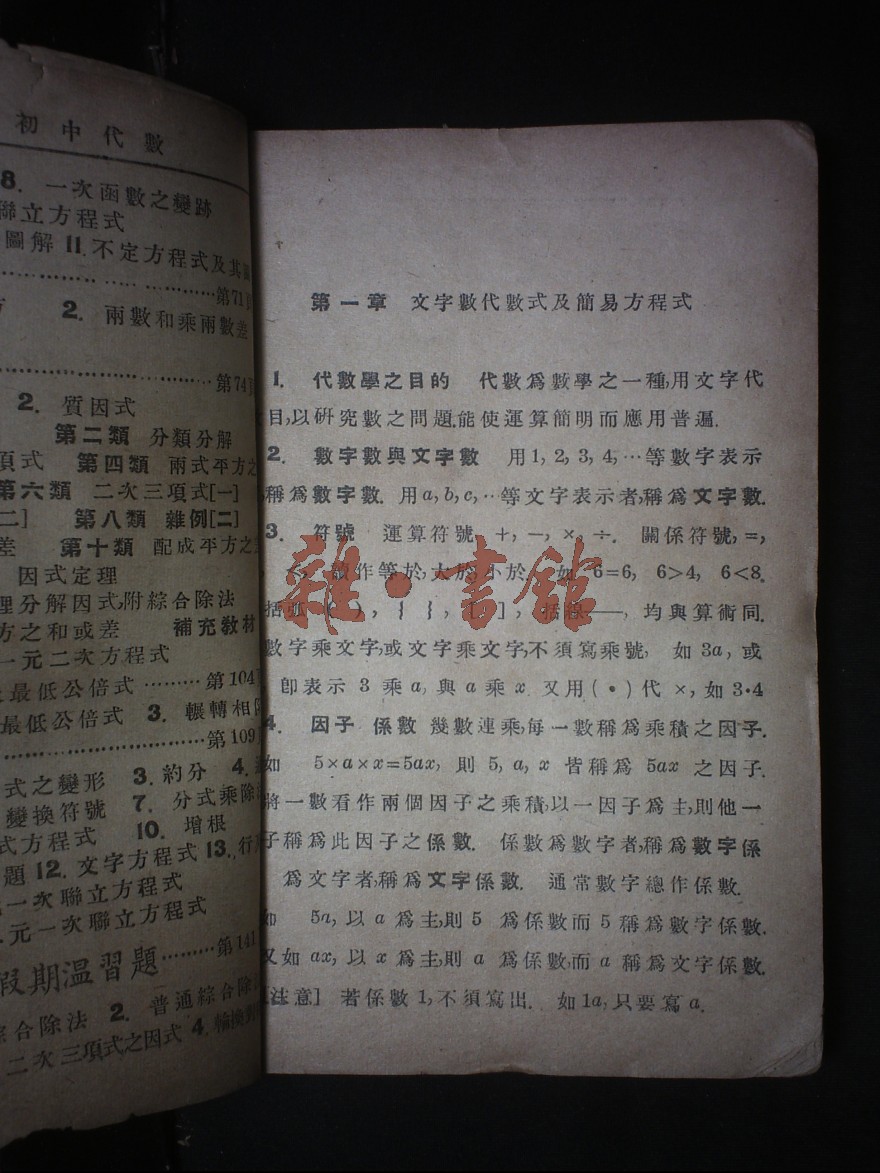 初中代數
8. 一次函數之變跡
聯立方程式
圖解 11. 不定方程式及其
第71
2. 兩數和乘兩數差
第74
2. 質因式
第二類 分類分解
項式 第四類 兩式平方之
第六類 二次三項式[一]
二] 第八類 雜例[二]
差 第十類 配成平方之
因式定理
理分解因式,附綜合除法
方之和或差 補充教材
一元二次方程式
最低公倍式 第104
最低公倍式 3. 輾轉相
第109
式之變形 3. 約分 4.
變換符號 7. 分式乘除
式方程式 10. 增根
題 12. 文字方程式 13.
一次聯立方程式
元一次聯立方程式
假期温習題 第141
綜合除法 2. 普通綜合除
二次三項式之因式 4. 輪換
第一章 文字數代數式及簡易方程式
1. 代數學之目的 代數爲數學之一種,用文字代
目,以研究數之問題.能使運算簡明而應用普遍.
2. 數字數與文字數 用1, 2, 3, 4, …等數字表示
稱爲數字數. 用a, b, c, …等文字表示者,稱爲文字數.
3. 符號 運算符號, +, −, ×, ÷. 關係符號, =,
讀作等於,大於,小於. 如 6=6, 6>4, 6<8.
括弧 ( ), { }, [ ], 括線——, 均與算術同.
數字乘文字,或文字乘文字,不須寫乘號, 如 3a, 或
即表示 3 乘 a, 與 a 乘 x. 又用 (·) 代 ×, 如 3·4
4. 因子 係數 幾數連乘,每一數稱爲乘積之因子.
如 5×a×x=5ax, 則 5, a, x 皆稱爲 5ax 之因子.
將一數看作兩個因子之乘積,以一因子爲主,則他一
子稱爲此因子之係數. 係數爲數字者,稱爲數字係
爲文字者,稱爲文字係數. 通常數字總作係數.
如 5a, 以 a 爲主,則 5 爲係數而 5 稱爲數字係數.
又如 ax, 以 x 爲主,則 a 爲係數,而 a 稱爲文字係數.
[注意] 若係數 1, 不須寫出. 如 1a, 只要寫 a.
雜·書館